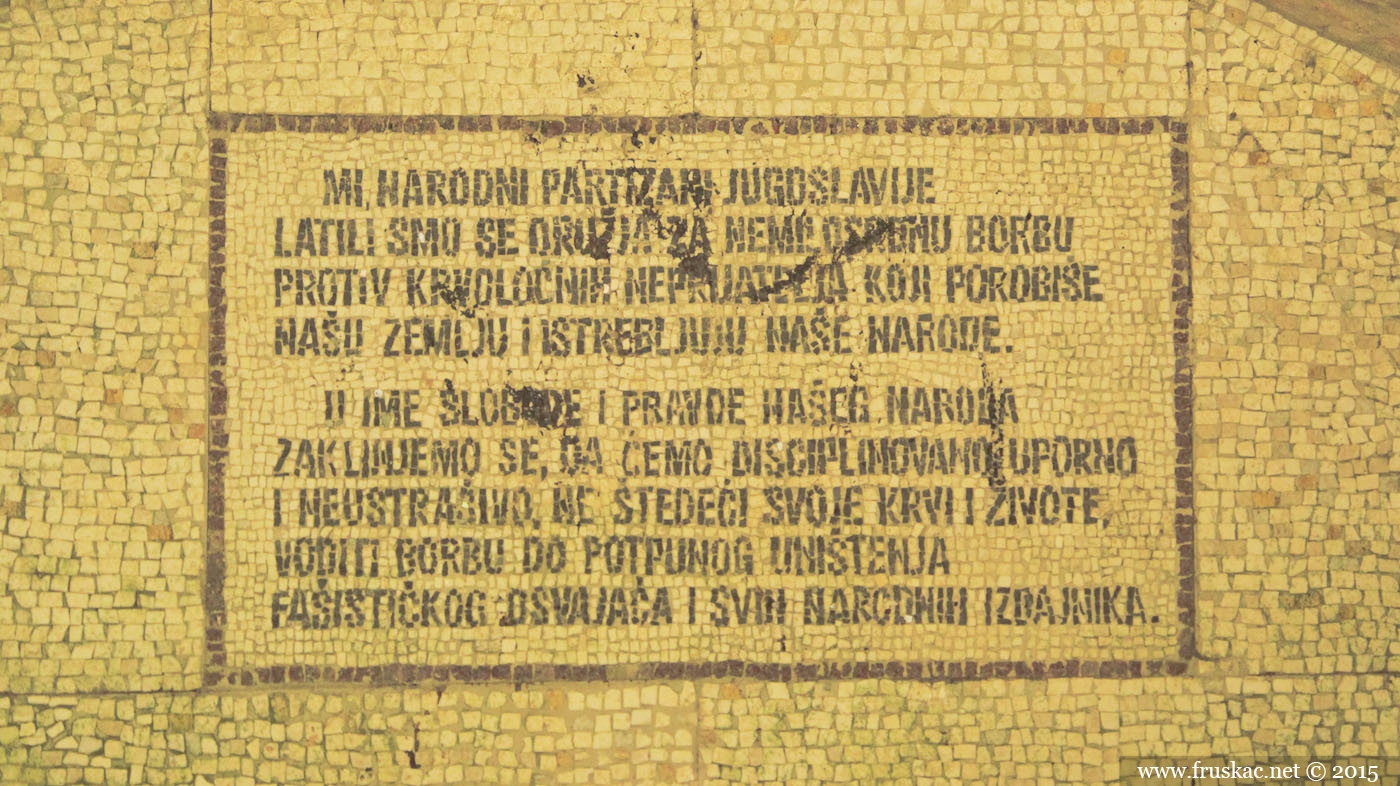 MI, NARODNI PARTIZANI JUGOSLAVIJE
LATILI SMO SE ORUŽJA ZA NEMILOSRDNU BORBU
PROTIV KRVOLOČNIH NEPRIJATELJA KOJI POROBIŠE
NAŠU ZEMLJU I ISTREBLJUJU NAŠE NARODE.
U IME SLOBODE I PRAVDE NAŠEG NARODA
ZAKLINJEMO SE, DA ĆEMO DISCIPLINOVANO, UPORNO
I NEUSTRAŠIVO, NE ŠTEDEĆI SVOJE KRVI I ŽIVOTE,
VODITI BORBU DO POTPUNOG UNIŠTENJA
FAŠISTIČKOG OSVAJAČA I SVIH NARODNIH IZDAJNIKA.
www.fruskac.net © 2015